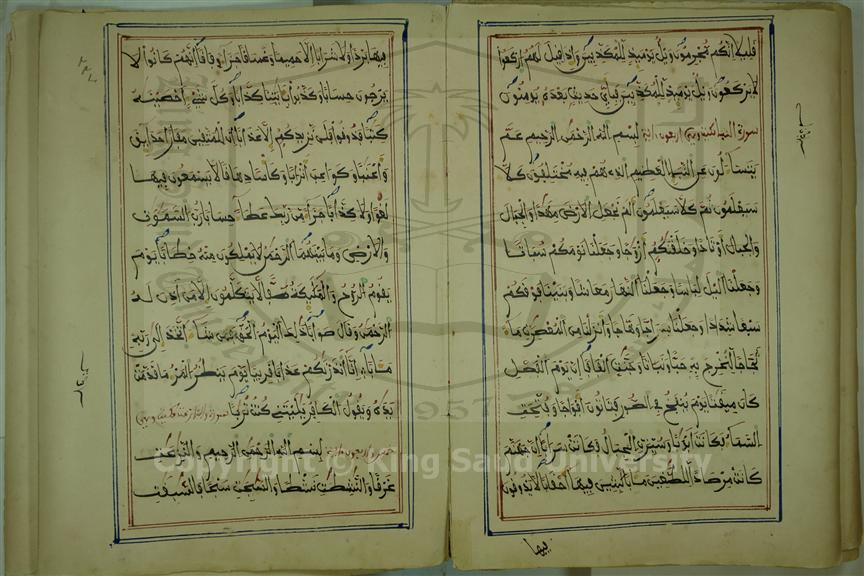 قليلا انكم مجرمون ويل يوميذ للمكذبين واذا قيل لهم اركعوا
لا يركعون ويل يوميذ للمكذبين فباي حديث بعده يومنون
سورة النبا مكية وهي اربعون اية بسم الله الرحمن الرحيم عم
يتساءلون عن النبا العظيم الذي هم فيه مختلفون كلا
سيعلمون ثم كلا سيعلمون الم نجعل الارض مهدا والجبال
والجبال اوتادا وخلقنكم ازوجا وجعلنا نومكم سباتا
وجعلنا اليل لباسا وجعلنا النهار معاشا وبنينا فوقكم
سبعا شدادا وجعلنا سراجا وهاجا وانزلنا من المعصرت ماء
ثجاجا لنخرج به حبا ونباتا وجنت الفافا ان يوم الفصل
كان ميقتا يوم ينفخ في الصور فتاتون افواجا وفتحت
السماء فكانت ابوبا وسيرت الجبال فكانت سرابا ان جهنم
كانت مرصادا للطغين مابا لبثين فيها احقابا لا يذوقون
فيها
فيها بردا ولا شرابا الا حميما وغساقا جزاء وفاقا انهم كانوا لا
يرجون حسابا وكذبوا بايتنا كذابا وكل شيء احصينه
كتبا فذوقوا فلن نزيدكم الا عذابا ان للمتقين مفازا حدايق
واعنبا وكواعب اترابا وكاسا دهاقا لا يسمعون فيها
لغوا ولا كذبا جزاء من ربك عطاء حسابا رب السموت
والارض وما بينهما الرحمن لا يملكون منه خطابا يوم
يقوم الروح والمليكة صفا لا يتكلمون الا من اذن له
الرحمن وقال صوابا ذلك اليوم الحق فمن شاء اتخذ الى ربه
مابا انا انذرنكم عذابا قريبا يوم ينظر المرء ما قدمت
يداه ويقول الكافر يليتني كنت تربا
بسم الله الرحمن الرحيم والنزعت
غرقا والنشطت نشطا والسبحت سبحا فالسبقت
1957
Copyright © King Saud University